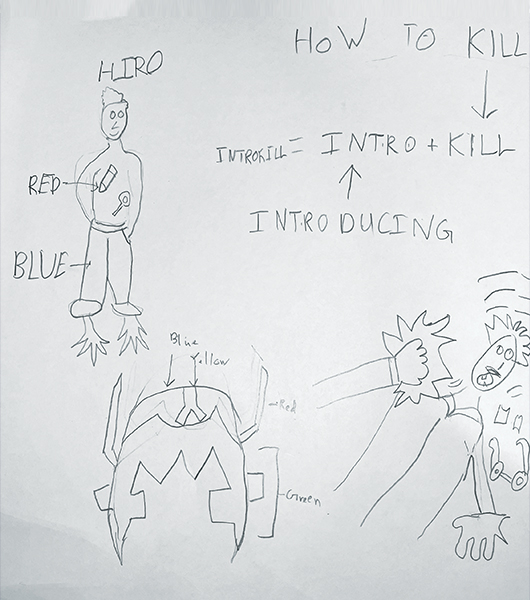 HOW TO KILL
HIRO
INTROKILL = INTRO + KILL
RED
INTRODUCING
BLUE
Blue
Yellow
Red
Green